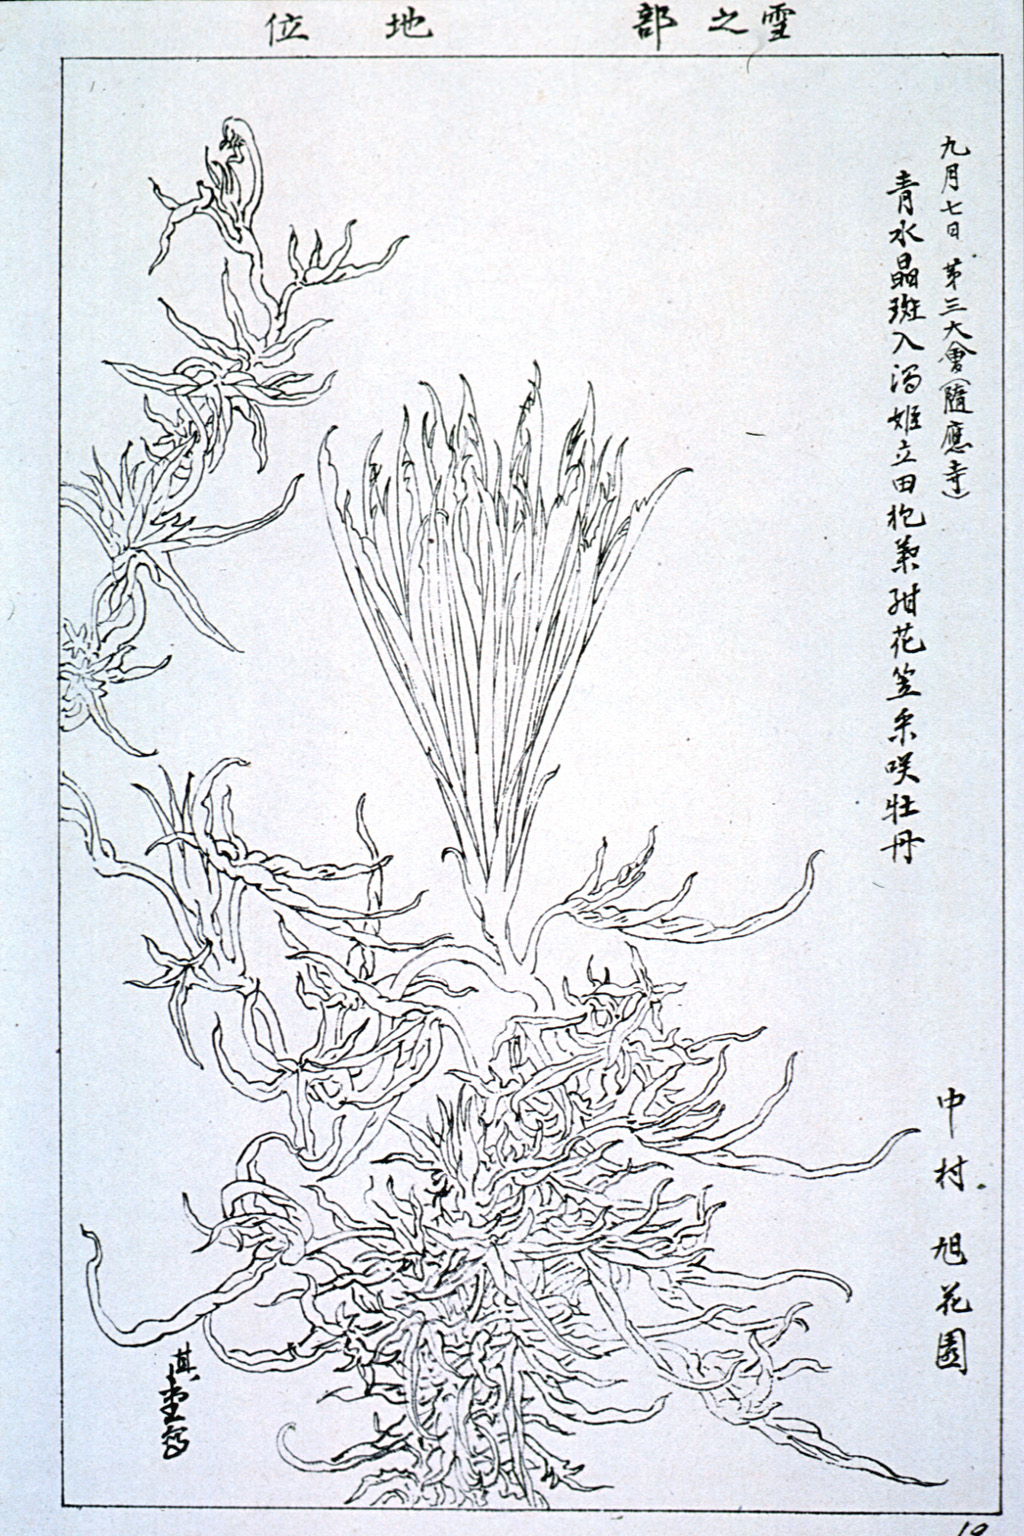 雪之部　地位
九月七日　第三大會（隨應寺）
青水晶斑入渦姫立田抱葉紺花笠采咲牡丹
中村　旭花園
其堂写
10